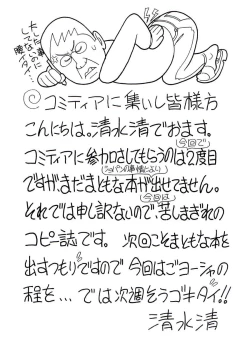 大した事
してないのに
腰ゥタイ…
コミティアに集いし皆様方
こんにちは。清水清でおます。
今回で
コミティアに参加させてもらうのは2度目
ですが、まだまともな本が出せてません。
今回は
それでは申し訳ないので、苦しまぎれの
コピー誌です。次回こそまともな本を
出すつもりですので今回はごヨーシャの
程を…では次週そうゴキタイ!!
清水清